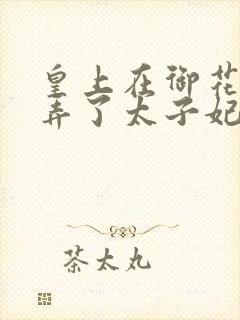 皇上在御花
弄了太子妃
茶太丸